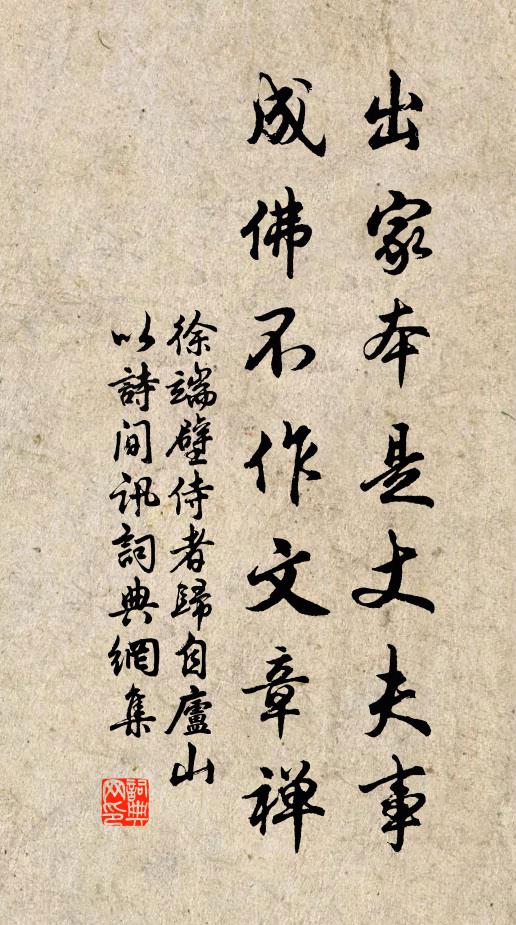 出家本是丈夫事
成佛不作文章禅
徐端璧侍者歸自廬山
以詩间讯詞典網集
詞典网印